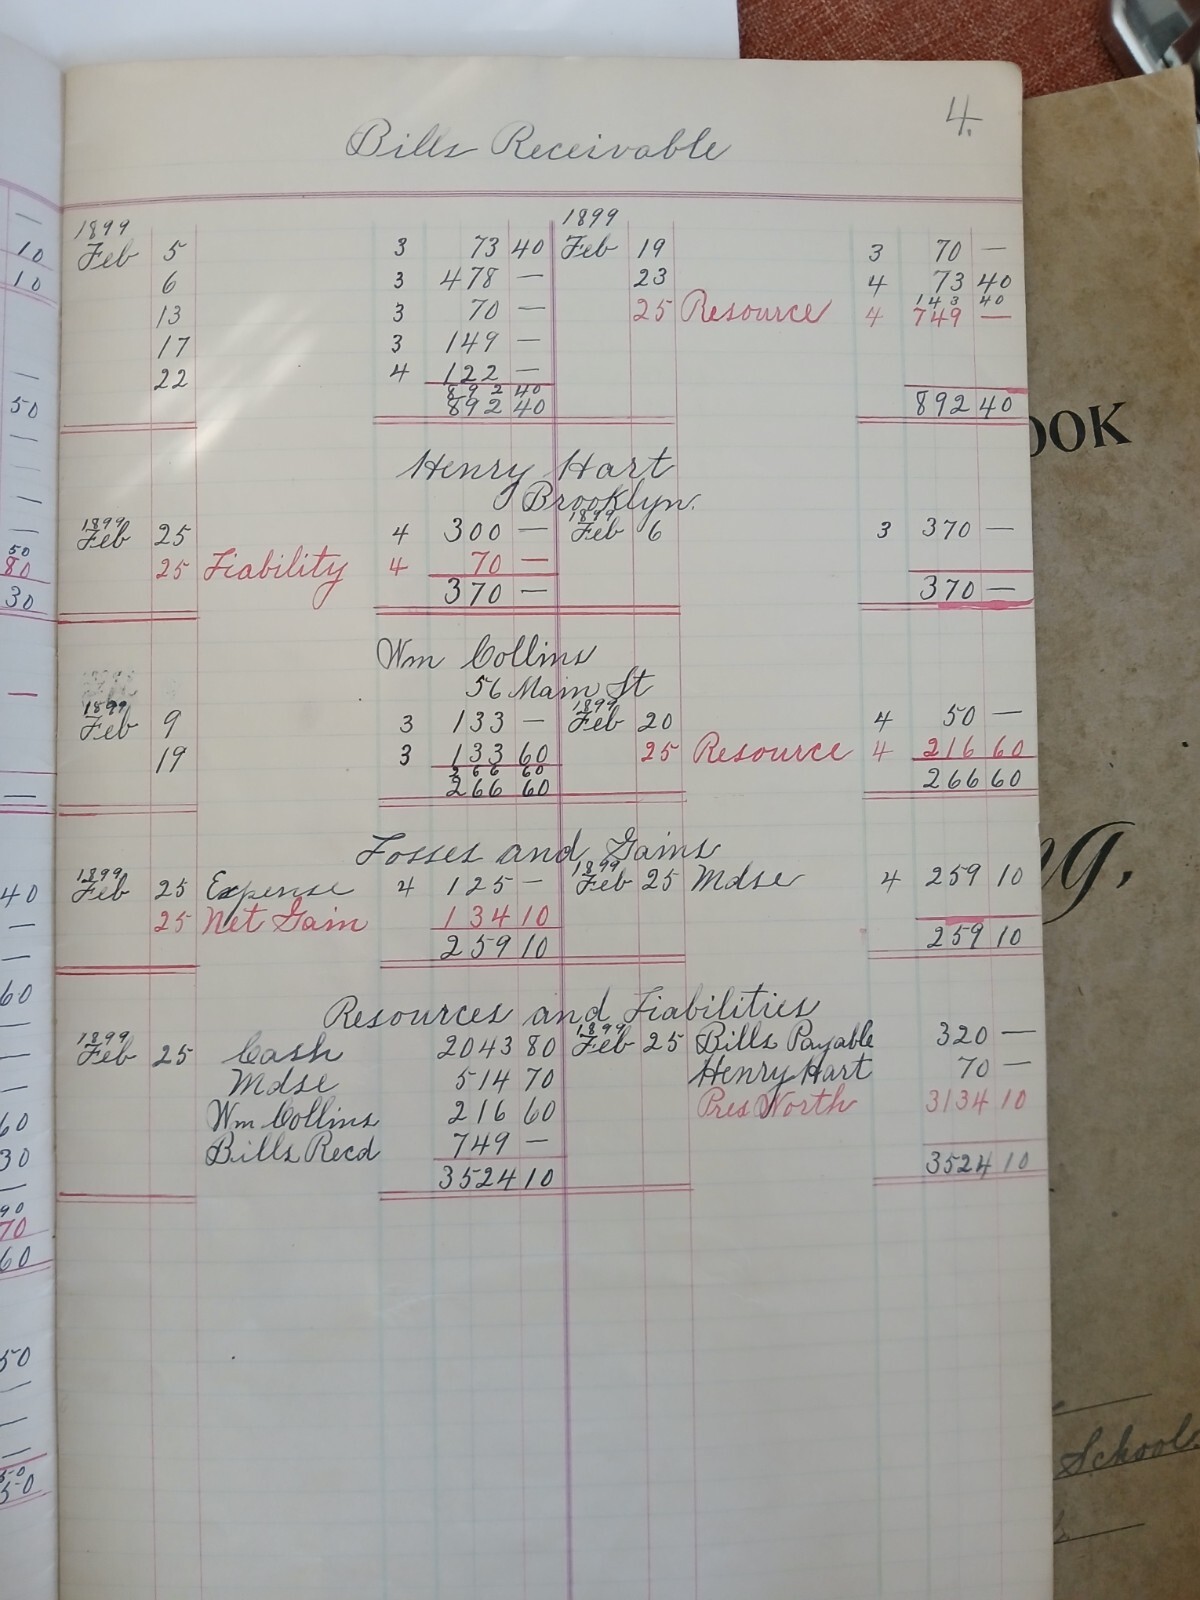 4.
Bills Receivable
1899 1899
Feb 5 3 73 40 Feb 19 3 70 —
6 3 478 — 23 4 73 40
143 40
13 3 70 — 25 Resource 4 749 —
17 3 149 —
22 4 122 —
892 40
892 40 892 40
Henry Hart
Brooklyn.
1899 1899
Feb 25 4 300 — Feb 6 3 370 —
25 Liability 4 70 —
370 — 370 —
Wm Collins
56 Main St
1899 1899
Feb 9 3 133 — Feb 20 4 50 —
19 3 133 60 25 Resource 4 216 60
266 60
266 60 266 60
Losses and Gains
1899 1899
Feb 25 Expense 4 125 — Feb 25 Mdse 4 259 10
25 Net Gain 134 10
259 10 259 10
Resources and Liabilities
1899 1899
Feb 25 Cash 2043 80 Feb 25 Bills Payable 320 —
Mdse 514 70 Henry Hart 70 —
Wm Collins 216 60 Pres Worth 3134 10
Bills Recd 749 —
3524 10 3524 10
10
10
50
50
80
30
40
60
60
30
90
70
60
50
50
50
OOK
g.
School